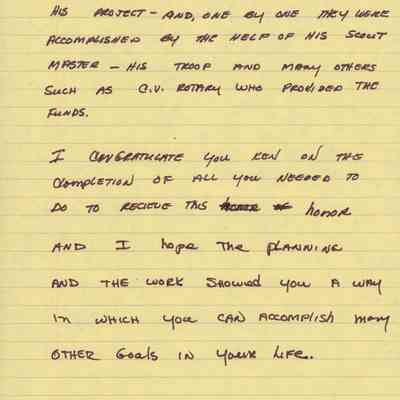 HIS PROJECT - AND, ONE BY ONE THEY WERE
ACCOMPLISHED BY THE HELP OF HIS SCOUT
MASTER - HIS TROOP AND MANY OTHERS
SUCH AS C.V. ROTARY WHO PROVIDED THE
FUNDS.
I CONGRATULATE YOU KEN ON THE
COMPLETION OF ALL YOU NEEDED TO
DO TO RECIEVE THIS honor
AND I hope THE PLANNING
AND THE WORK SHOWED YOU A WAY
IN WHICH YOU CAN ACCOMPLISH MANY
OTHER GOALS IN YOUR LIFE.